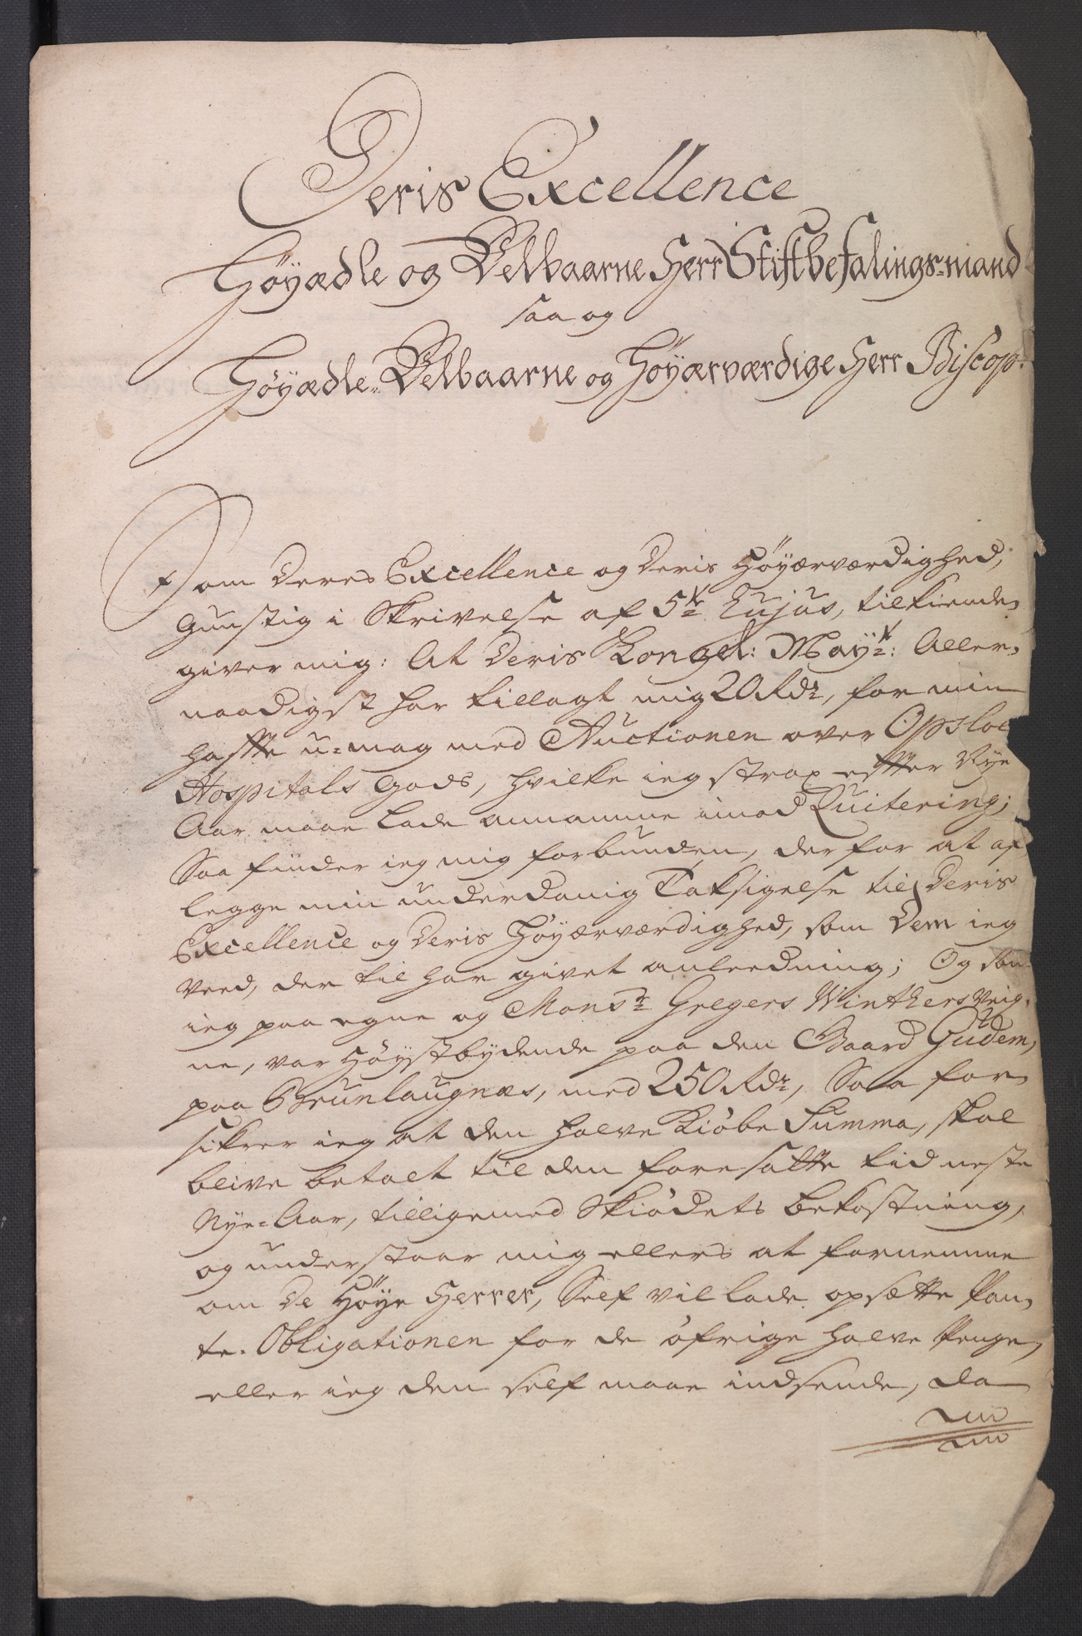 Deris Excellence
Höyædle og Velbaarne Herr Stiftbefalings-mand
saa og
Höyædle-Velbaarne og Höyærværdige Herr Biscop.
Som Deres Excellence og Deris Höyærværdighed,
Gunstig i Skrivelse af 5te hujus, tilkiende-
giver mig: At Deris Kongel: Mayt: Aller-
naadigst har tillagt mig 20 Rdr, for min
hafte u-mag med Auctionen over Opsloe
Hospitals Gods, hvilke ieg strax effter Nye
Aar maae lade annamme imod Quitering;
Saa finder ieg mig forbunden, derfor at af
legge min underdanig Taksigelse til Deris
Excellence og Deris Höyærværdighed, som Dem ieg
veed, der til har givet anleedning; Og som
ieg paa egne og Monsr Gregers Winthers Veig-
ne, var Höystbydende paa den Gaard Gudem,
paa Brunlaugnæs, med 250 Rdr, Saa for-
sikrer ieg at den halve Kiöbe Summa, skal
blive betalt til den foresatte tid neste
Nye-Aar, tilligemed Skiödets bekostning,
og understaar mig ellers at fornemme
om De Höye Herrer, Self vil lade opsætte Pan-
te-Obligationen for de öfrige halve Penge,
eller ieg den self maae indsende, da